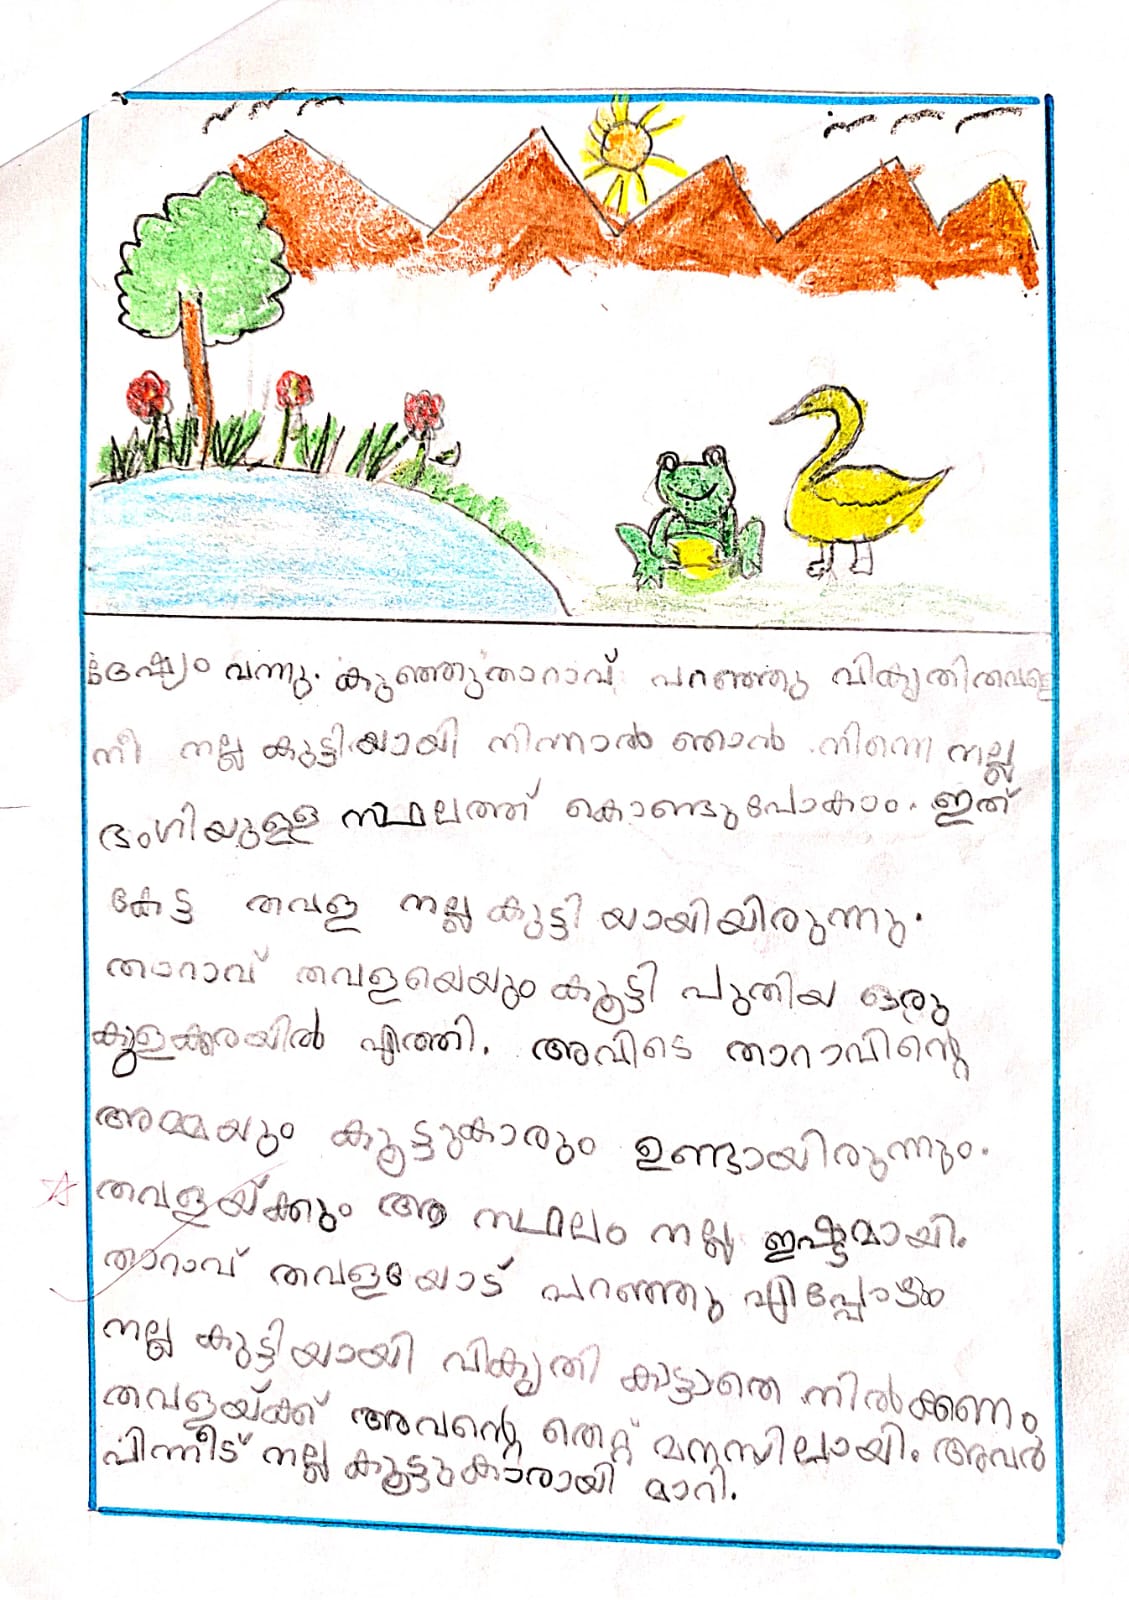 ദേഷ്യം വന്നു. കുഞ്ഞുതാറാവ് പറഞ്ഞു വികൃതിതവളെ
നീ നല്ല കുട്ടിയായി നിന്നാൽ ഞാൻ നിന്നെ നല്ല
ഭംഗിയുള്ള സ്ഥലത്ത് കൊണ്ടുപോകാം. ഇത്
കേട്ട തവള നല്ല കുട്ടി യായിയിരുന്നു.
താറാവ് തവളയെയും കൂട്ടി പുതിയ ഒരു
കുളക്കരയിൽ എത്തി. അവിടെ താറാവിന്റെ
അമ്മയും കൂട്ടുകാരും ഉണ്ടായിരുന്നും.
തവളയ്ക്കും ആ സ്ഥലം നല്ല ഇഷ്ടമായി.
താറാവ് തവളയോട് പറഞ്ഞു എപ്പോഴും
നല്ല കുട്ടിയായി വികൃതി കാട്ടാതെ നിൽക്കണം
തവളയ്ക്ക് അവന്റെ തെറ്റ് മനസ്സിലായി. അവർ
പിന്നീട് നല്ല കൂട്ടുകാരായി മാറി.